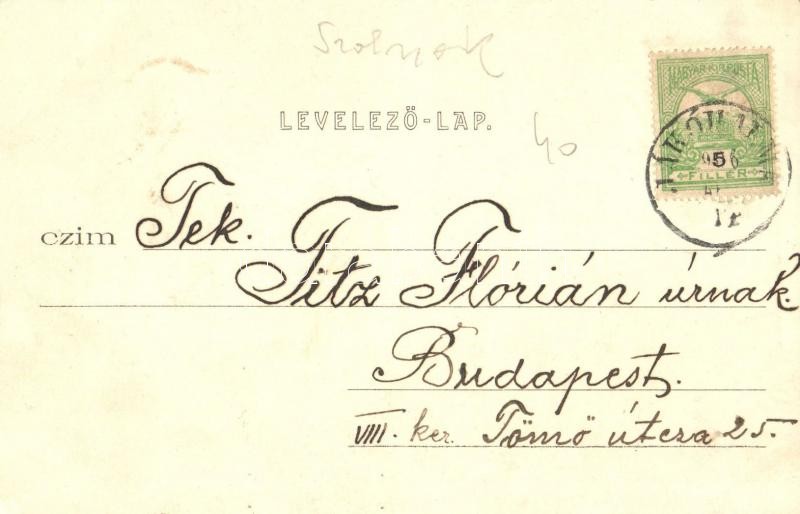 Szolnok
LEVELEZŐ-LAP.
40
MAGYAR KIR. POSTA
5
FILLÉR
czim Tek.
Titz Flórián úrnak.
Budapest.
VIII. ker. Tömő útcza 25.